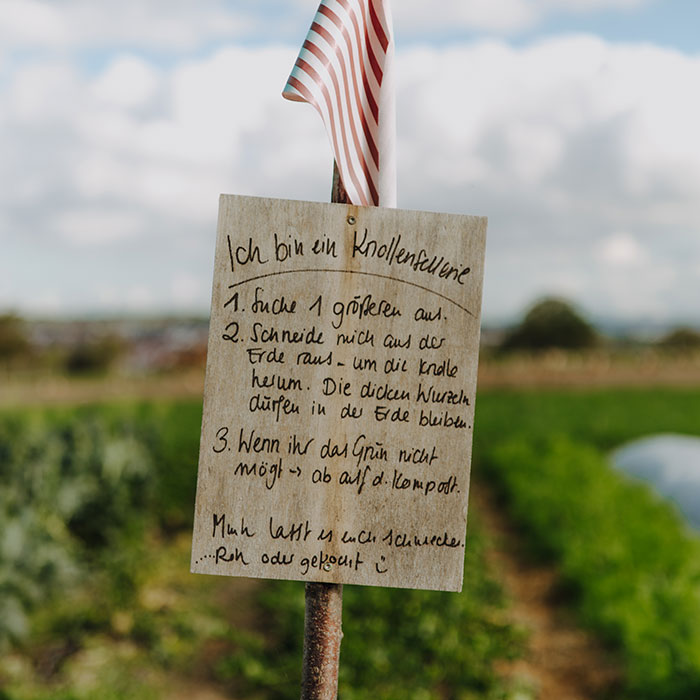 Ich bin ein Knollensellerie
1. Suche 1 größeren aus.
2. Schneide mich aus der
Erde raus - um die Knolle
herum. Die dicken Wurzeln
dürfen in der Erde bleiben.
3. Wenn ihr das Grün nicht
mögt → ab auf d. Kompost.
lasst es euch schmecken.
....Roh oder gekocht :)